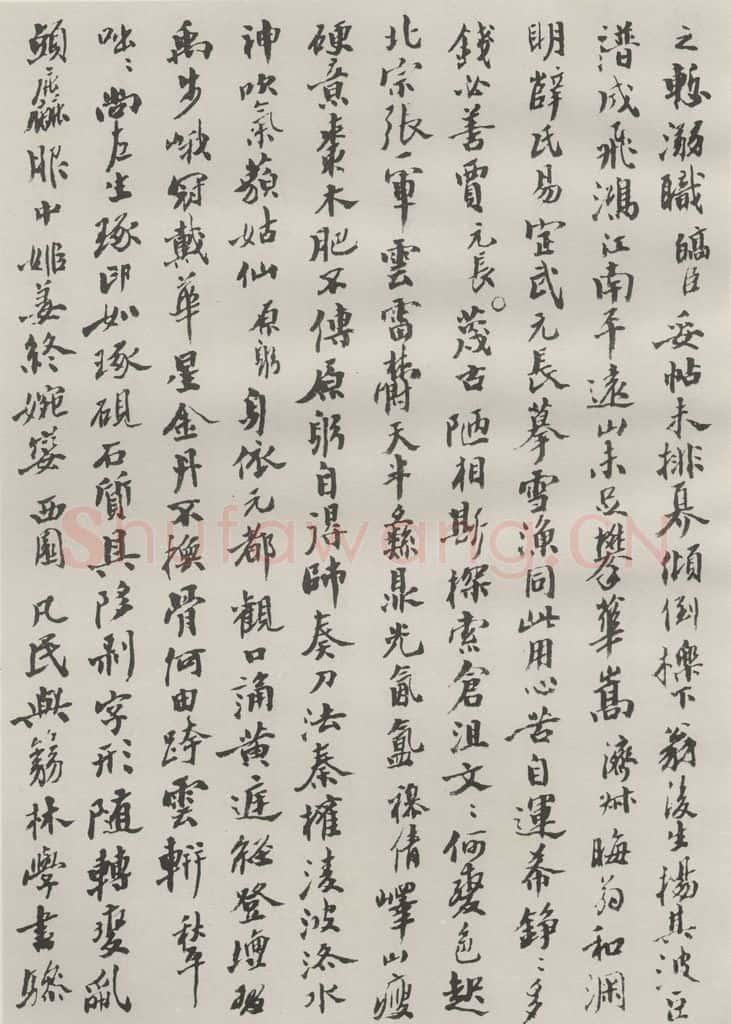 之暫溺職 皜臣 妥帖未排奡傾倒櫟下翁後生揚其波亘
潛成飛鴻江南平遠山未足攀華嵩 濟叔 晦翁和淵
明薛氏易定武元長摹雪漁同此用心苦自運希錚〻多
錢必善賈 元長 蔑古陋相斯探索倉沮文〻何變色起
北宗張一軍雲雷鬱天半彝鼎光氤氳 穆倩 嶧山瘦
硬意棗木肥不傳原躬自得師奏刀法秦權淩波洛水
神吹氣藐姑仙 原躬 身依元都觀口誦黃庭經登壇
禹步峨冠戴華星金丹不換骨何由跨雲輧 秋平
咄〻尚左生琢印如琢硯石質具陊剝字形隨轉變亂
頭麤服中姬姜終婉孌 西園 凡民與篛林學書驂
Shufawang.CN